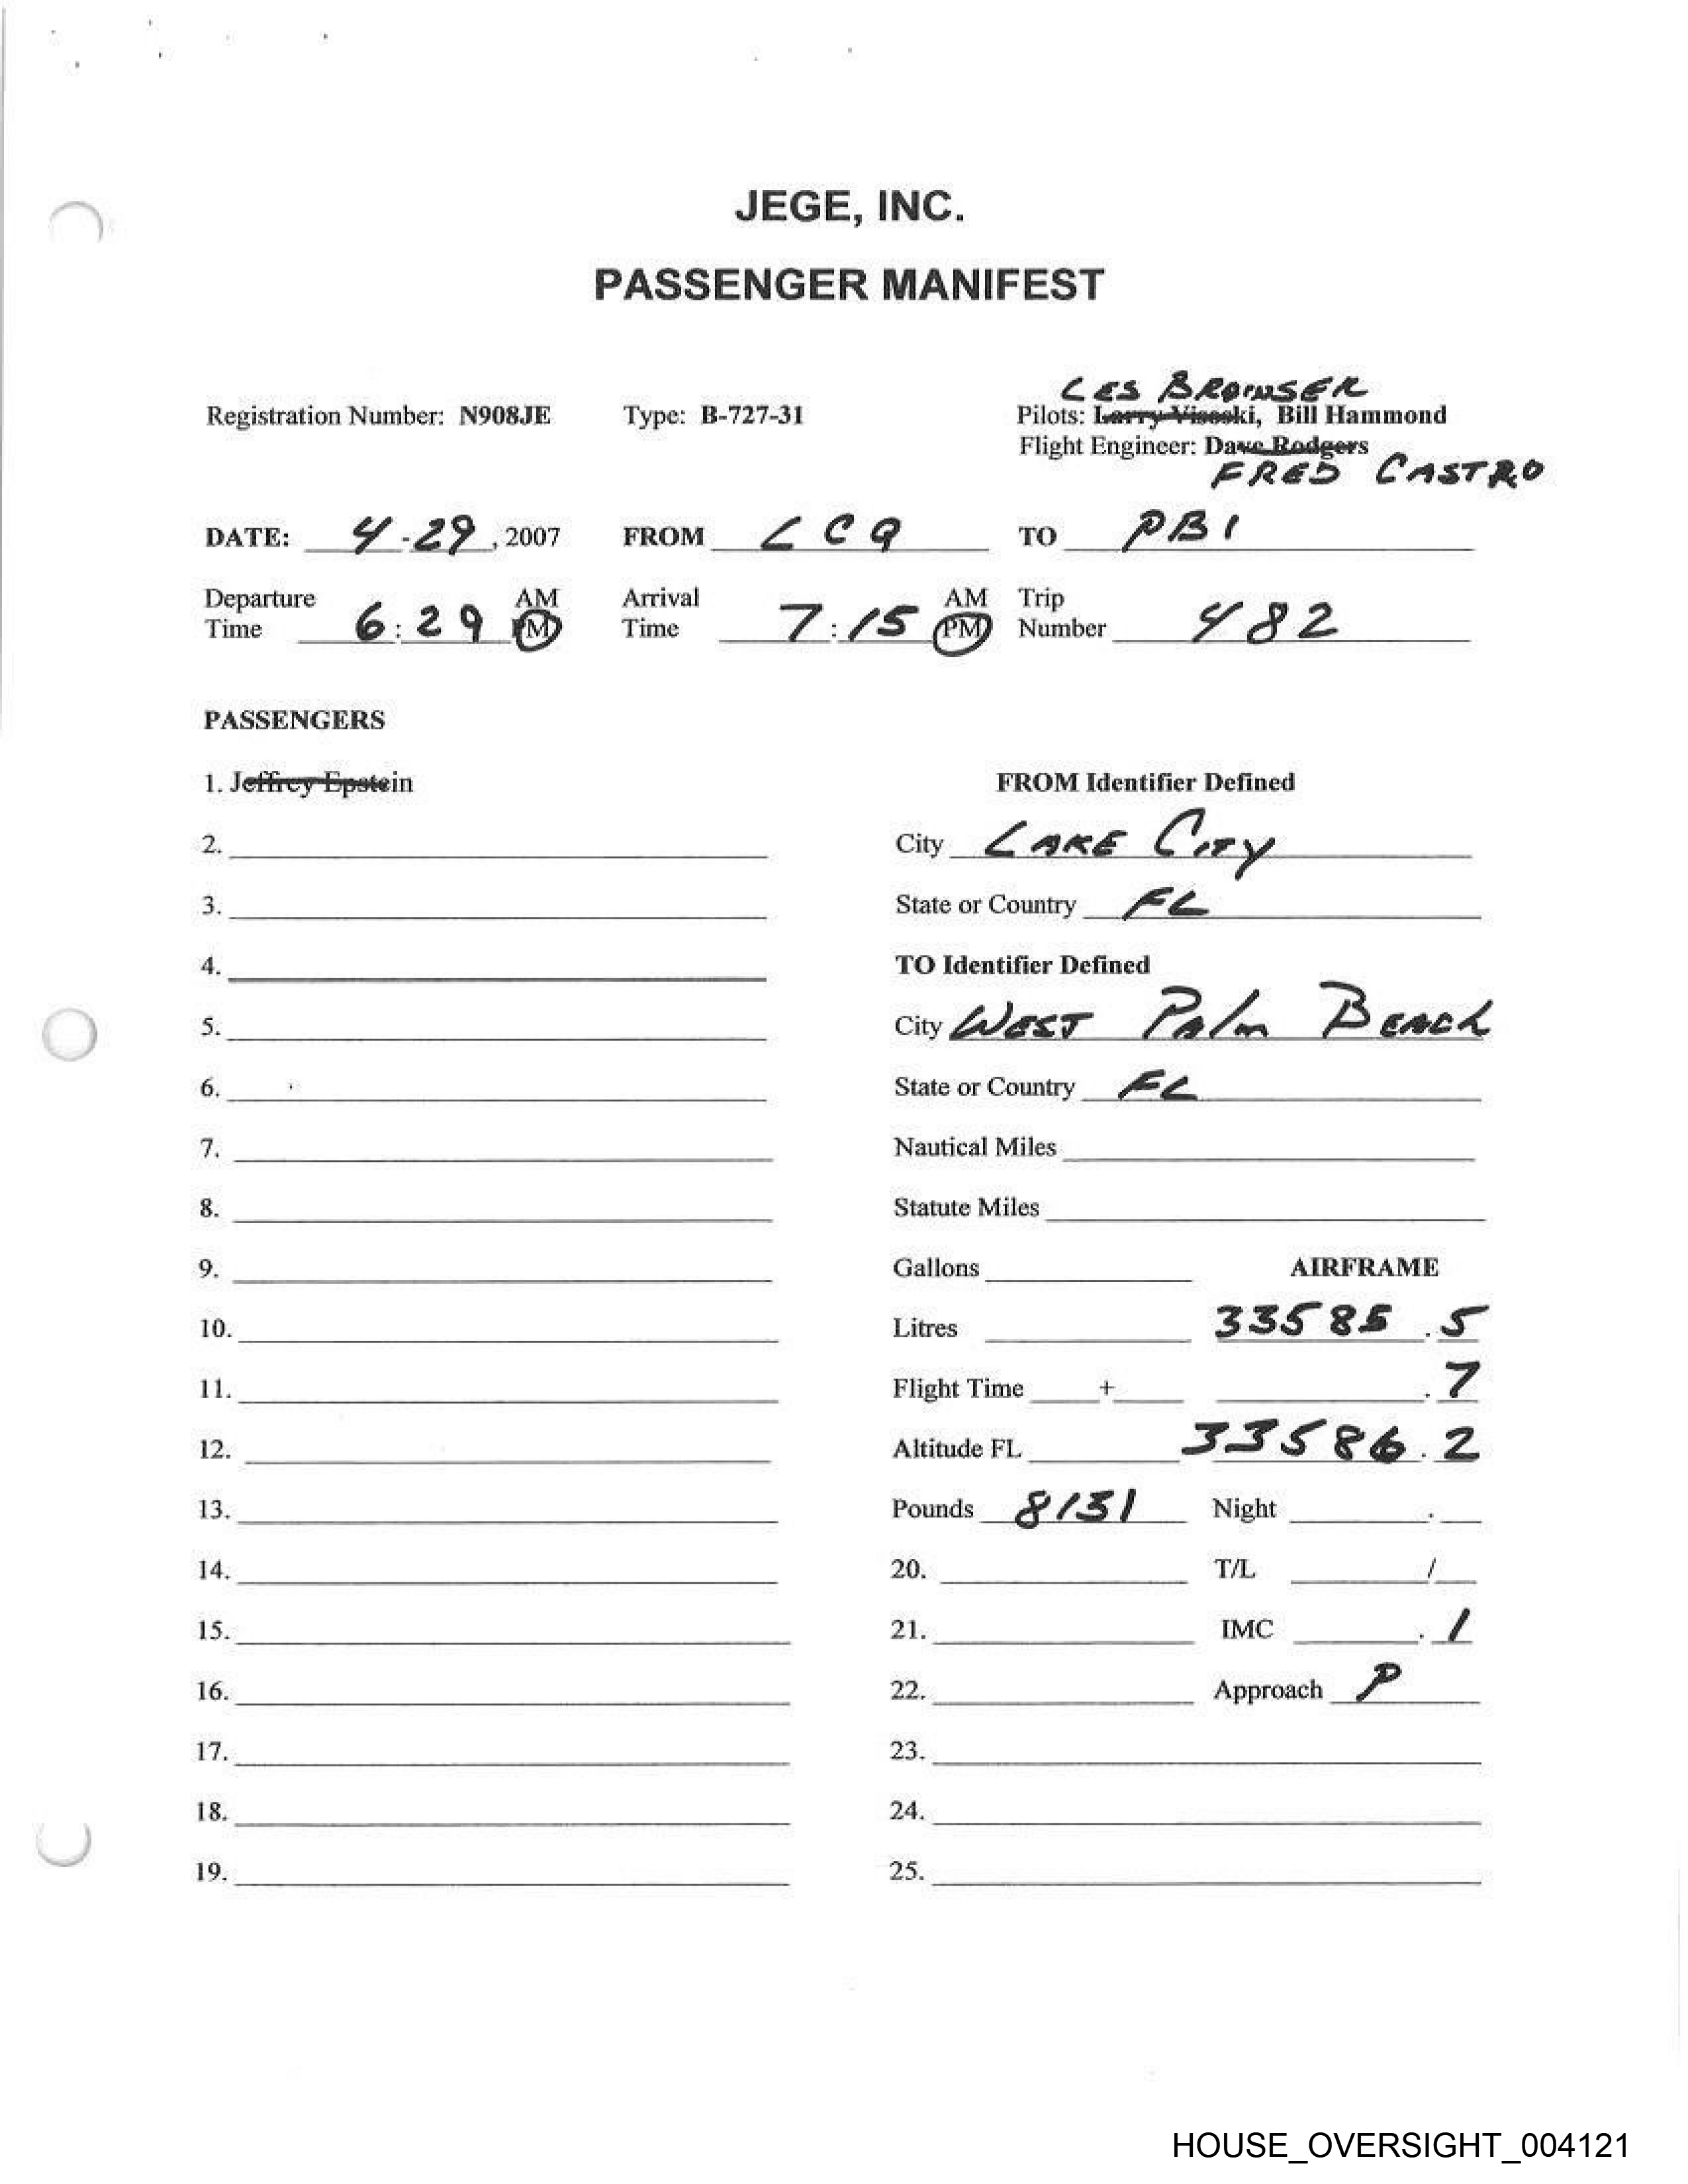 JEGE, INC.
PASSENGER MANIFEST
LES BROWSER
Registration Number: N908JE Type: B-727-31 Pilots: Larry Visoski, Bill Hammond
Flight Engineer: Dave Rodgers
FRED CASTRO
DATE: 4-29, 2007 FROM LCQ TO PBI
Departure Time 6:29 AM PM Arrival Time 7:15 AM PM Trip Number 482
PASSENGERS
1. Jeffrey Epstein FROM Identifier Defined
2. City LAKE CITY
3. State or Country FL
4. TO Identifier Defined
5. City WEST PAlm BEACh
6. State or Country FL
7. Nautical Miles
8. Statute Miles
9. Gallons AIRFRAME
10. Litres 33585.5
11. Flight Time + .7
12. Altitude FL 33586.2
13. Pounds 8131 Night .
14. 20. T/L /
15. 21. IMC .1
16. 22. Approach P
17. 23.
18. 24.
19. 25.
HOUSE_OVERSIGHT_004121